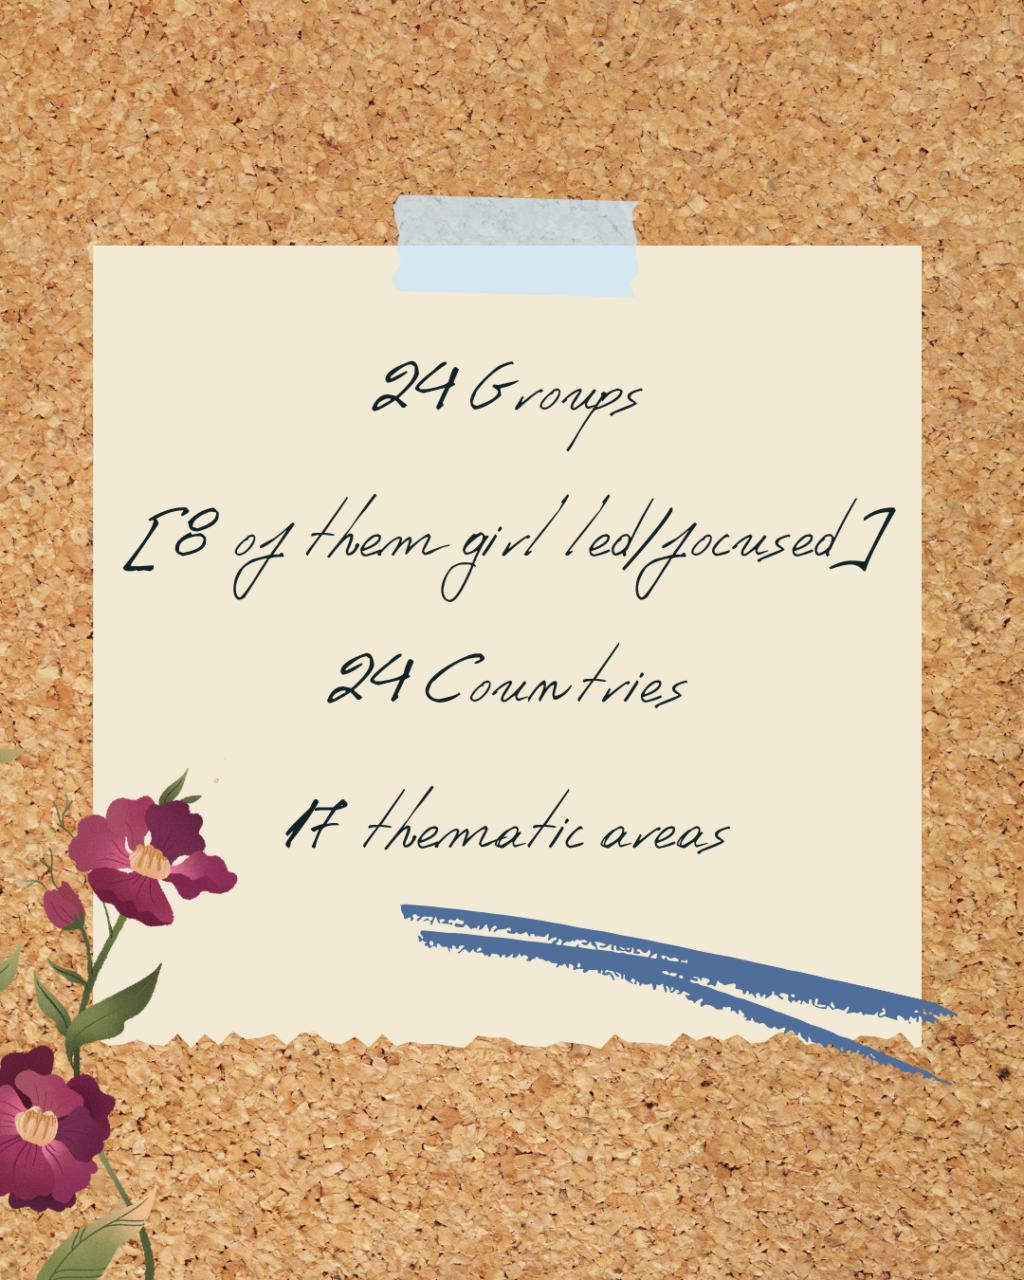 24 Groups
[8 of them girl led/focused]
24 Countries
17 thematic areas